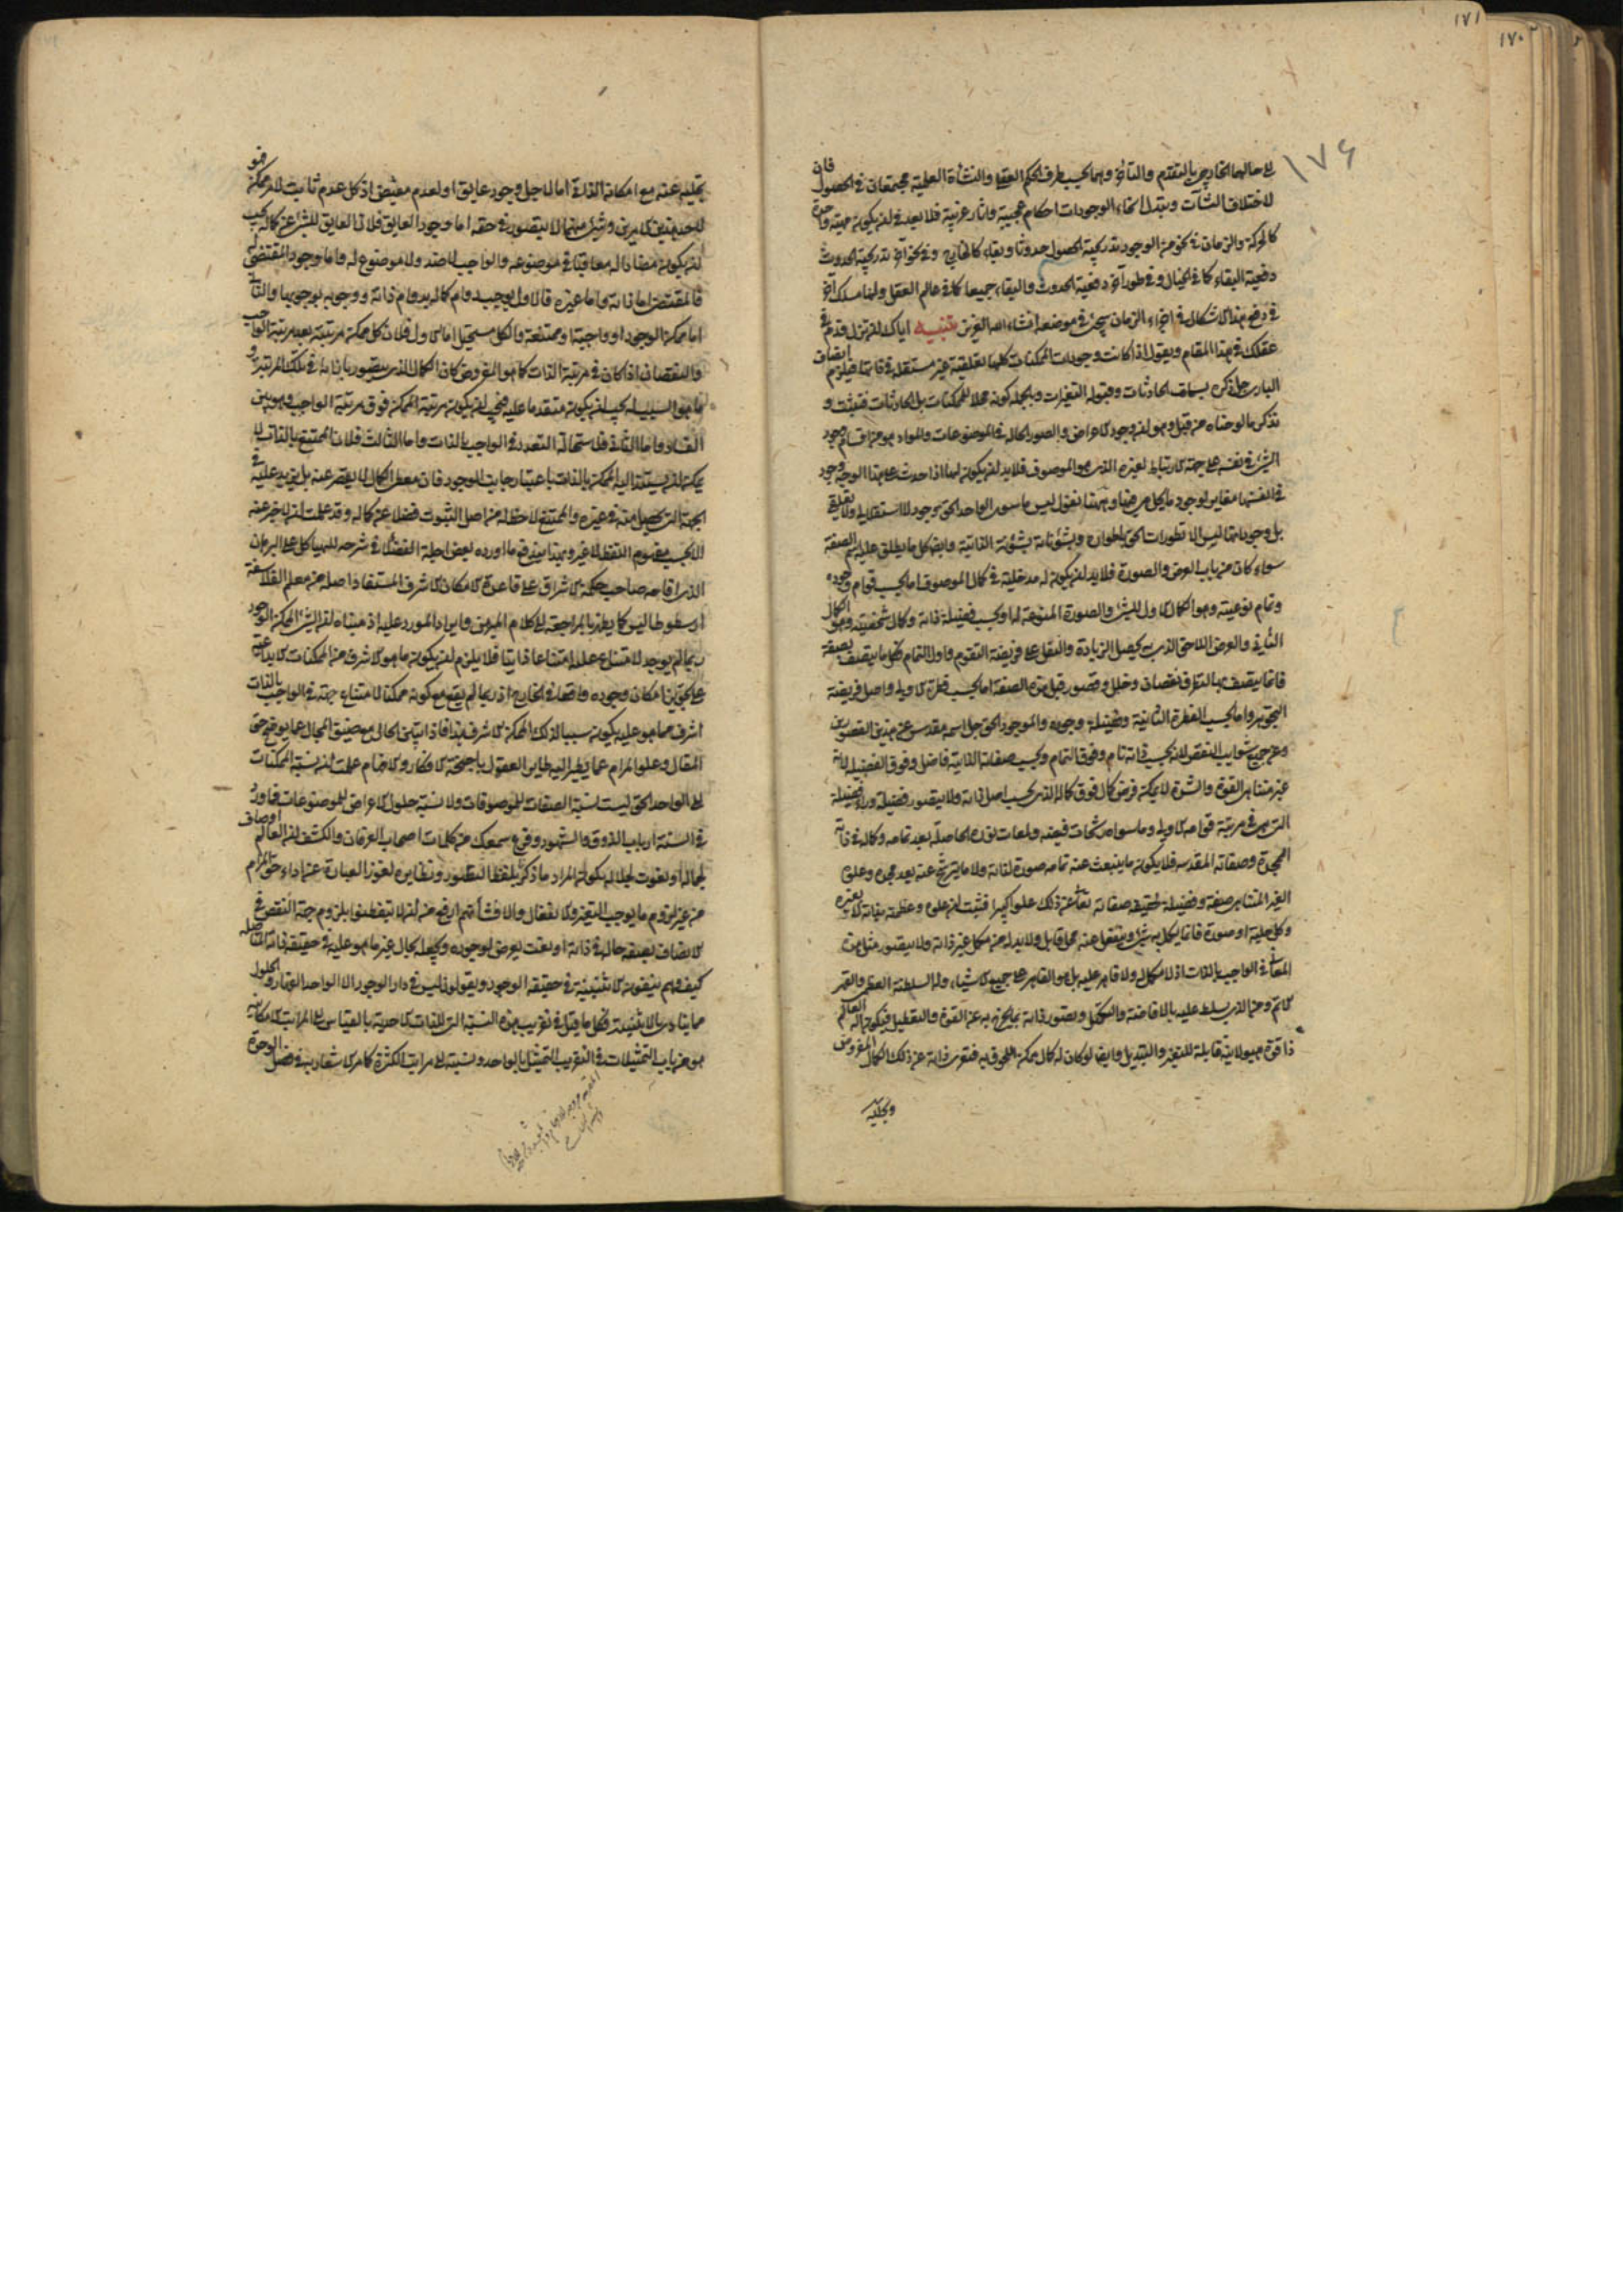 ١٧١
١٧٠
١٧٦
الى حالهما الخارجي بالتقدم والتأخر وهما بحسب ظرف الحكم العقلي والنشأة العلمية مجتمعان في الحصول فان
لاختلاف النشآت وتبدل انحاء الوجودات احكام عجيبة واثار غريبة فلا بعد في ان يكون مهية واحدة
كالحركة والزمان في نحو من الوجود تدريجية الحصول حدوثا وبقاء كالخارج وفي نحو آخر تدريجية الحدوث
دفعية البقاء كما في الخيال وفي طور آخر دفعية الحدوث والبقاء جميعا كما في عالم العقل ولنا مسلك آخر
في دفع هذا الاشكال في اجزاء الزمان سيجيء في موضعه انشاء الله العزيز تنبيه اياك ان تزل قدم
عقلك في هذا المقام وتقول اذا كانت وجودات الممكنات كلها تعلقية غير مستقلة في ذاتها فيلزم اتصاف
الباري جل ذكره بسمات الحادثات وقبوله التغيرات وبالجملة كونه محلا للممكنات بل الحادثات فتثبت و
تذكر ما لوحناه من قبل وهو ان وجود الاعراض والصور الحالة في الموضوعات والمواد هو من اقسام وجود
الشيء في نفسه على جهة الارتباط بغيره الذي هو الموصوف فلا بد ان يكون لها اذا احدث على هذا الوجه وجود
في انفسها مغاير لوجود ما يحل هي فيها وههنا نقول ليس ما سوى الواحد الحق وجود لا استقلالي ولا تعلقي
بل وجوداتها ليس الا تطورات الحق باطواره وتشؤناته بشؤنه الذاتية وايضا كل ما يطلق عليه اسم الصفة
سواء كان من باب العرض والصورة فلا بد ان يكون له مدخلية في كمال الموصوف اما بحسب قوام وجوده
وتمام نوعيته وهو الكمال الاول للشيء والصورة المنوعة له او بحسب فضيلة ذاته وكمال شخصيته وهو الكمال
الثاني والعرض اللاحق الذي به يحصل الزيادة والنفل على فريضة التقوم واول التمام فكل ما يتصف بصفة
فانما يتصف بها لتطرق نقصان وخلل وقصور قبل هذه الصفة اما بحسب فطرة الاولى واصل فريضة
التجوهر واما بحسب الفطرة الثانية وفضيلة وجوده والموجود الحق جل اسمه مقدس عن هذين القصورين
وعن جميع شوايب النقص لانه بحسب ذاته تام وفوق التمام وبحسب صفاته الذاتية فاضل وفوق الفضيلة لانه
غير متناهي القوة والشدة لا يمكن فرض كمال فوق كماله الذي بحسب اصل ذاته ولا يتصور فضيلة وراء فضيلة
التي هي في مرتبة قوامه الاولى وما سواه رشحات فيضه ولمعات نوره الحاصلة بعد تمامه وكماله في ذاته
المجردة وصفاته المقدسة فلا يكون ما ينبعث عنه تمامه صورة لذاته ولا ما يترشح عنه بعد مجده وعلوه
الغير المتناهي صفة وفضيلة لحقيقة صفاته تعالى عن ذلك علوا كبيرا فثبت ان علوه وعظمته بذاته لا بغيره
وكل حلية او صورة فانما يكمل به شيء وينفعل عنه محل قابل ولا بد له من مكمل غير ذاته ولا يتصور مثل هذه
المعاني في الواجب بالذات اذ لا مكمل له ولا قاهر عليه بل هو القاهر على جميع الاشياء وله السلطنة العظمى والقهر
الاتم ومن الذي يسلط عليه بالافاضة والتكميل وتصور ذاته بما يخرج به عن القوة والتعطيل فيكون اله العالم
ذا قوة هيولانية قابلة للتغير والتبديل وايضا لو كان له كمال ممكن اللحوق به فتعرى ذاته عن ذلك الكمال المفروض
وتخليه
تخليه عنه مع امكانه الذاتي اما لاجل وجود عايق او لعدم مقتض اذ كل عدم ثابت لامر ممكن فهو
لاحد هذين الامرين وشيء منهما لا يتصور في حقه اما وجود العايق فلان العايق للشيء عن كماله يجب
ان يكون مضادا له معاقبا في موضوعه والواجب لا ضد له ولا موضوع له واما وجود المقتضي له
فالمقتضي اما ذاته واما غيره فالاول يوجب دوام كماله بدوام ذاته ووجوبه بوجوبها والثاني
اما ممكن الوجود او واجبه او ممتنعه والكل مستحيل اما الاول فلان كل ممكن مرتبته بعد مرتبة الواجب
والنقصان اذا كان في مرتبة الذات كما هو المفروض كان الكمال الذي يتصور بازائه في تلك المرتبة و
ما هو السبب له يجب ان يكون متقدما عليه فيجب ان يكون مرتبة الممكن فوق مرتبة الواجب وهو بين
الفساد واما الثاني فلاستحالة التعدد في الواجب بالذات واما الثالث فلان الممتنع بالذات لا
يمكن ان يستند اليه الممكن بالذات باعتبار جانب الوجود فان معطي الكمال لا يقصر عنه بل يزيد عليه في
الجهة التي يحصل منه في غيره والممتنع لا حظ له من اصل الثبوت فضلا عن كماله وقد علمت ان لا خبر عنه
الا بحسب مفهوم اللفظ لا غير وبهذا يندفع ما اورده بعض اجلة الفضلاء في شرحه للهياكل على البرهان
الذي اقامه صاحب حكمة الاشراق على قاعدة الامكان الاشرف المستفاد اصله من معلم الفلاسفة
ارسطوطاليس كما يظهر بالمراجعة الى كلام المبرهن وايراد المورد عليه اذ مبناه ان الشيء الممكن الوجود
ربما لم يوجد لامتناع علته امتناعا ذاتيا فلا يلزم ان يكون ما هو الاشرف من الممكنات الابداعية
على تجويز امكان وجوده واقعا في الخارج اذ ربما لم يقع مع كونه ممكنا لامتناع جهة في الواجب بالذات
اشرف مما هو عليه يكون سببا لذلك الممكن الاشرف هذا فاذا انتهى الحال مع ضيق المجال عما يوضح حق
المقال وعلو المرام عما يطير اليه طاير العقول باجنحة الافكار والافهام علمت ان نسبة الممكنات
الى الواحد الحق ليست نسبة الصفات للموصوفات ولا نسبة حلول الاعراض للموضوعات فما ورد
في السنة ارباب الذوق والشهود وقرع سمعك من كلمات اصحاب العرفان والكشف ان العالم اوصاف
لجماله او نعوت لجلاله يكون المراد ما ذكرنا بلفظ التطور ونظايره لعوز العبارة عن اداء حق المرام
من غير لزوم ما يوجب التغير والانفعال والا فشأنهم ارفع من ان لا يتفطنوا بلزوم جهة النقص في
الاتصاف بصفة حالة في ذاته او نعت يعرض لوجوده ويجعله بحال غير ما هو عليه في حقيقة ذاته المتاصلة
كيف وهم ينفون الاثنينية في حقيقة الوجود ويقولون ليس في دار الوجود الا الواحد القهار والحلول
مما ينادي بالاثنينية فكل ما قيل في تقريب هذه النسبة التي للذات الاحدية بالقياس الى المراتب الامكانية
هو من باب التمثيلات في التقريب التمثيل بالواحد ونسبته الى مراتب الكثرة كما مر الاشعار به في فصل الوحدة